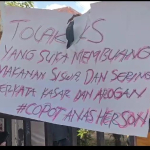 TOLAK
YANG SUKA MEMBUANG
MAKANAN SISWA DAN SERING
BERKATA KASAR DAN AROGAN
#COPOT ANAS HERSON